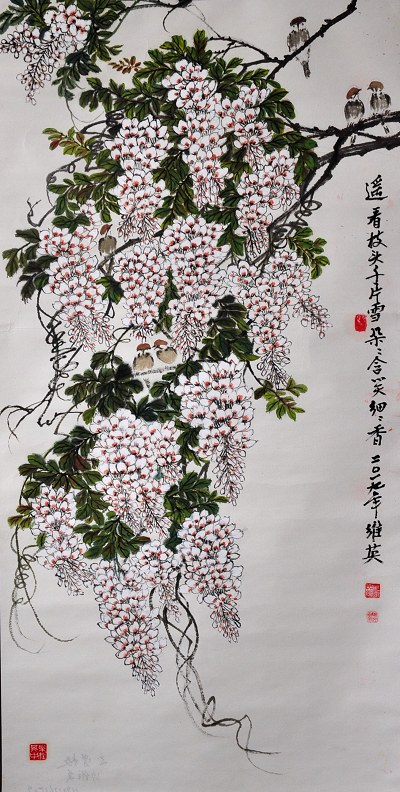 遥看枝头千片雪朵〻含笑细〻香二〇一九年雄英